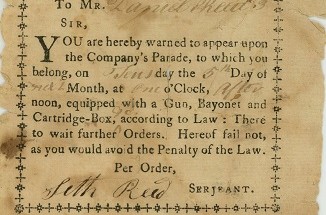 To Mr. Daniel
SIR,
YOU are hereby warned to appear upon
the Company's Parade, to which you
belong, on Thursday the 5th Day of
Month, at one o'Clock, after
noon, equipped with a Gun, Bayonet and
Cartridge-Box, according to Law: There
to wait further Orders. Hereof fail not,
as you would avoid the Penalty of the Law.
Per Order,
Seth Reed SERJEANT.